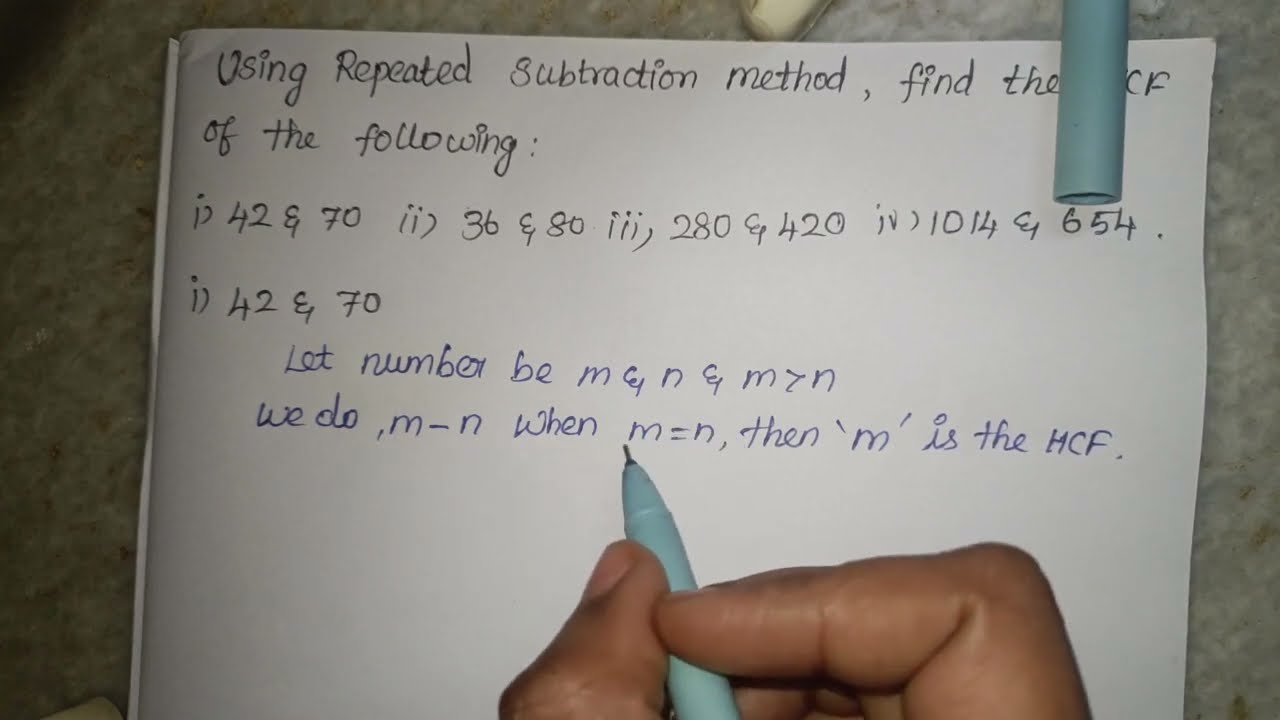 Using Repeated Subtraction method, find the CF
of the following:
i) 42 & 70 ii) 36 & 80 iii) 280 & 420 iv) 1014 & 654.
i) 42 & 70
Let number be m & n & m > n
we do, m - n when m = n, then 'm' is the HCF.